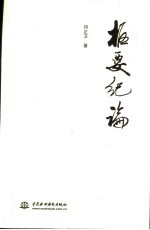 枢要纪论
著
中国水利水电出版社
www.waterpub.com.cn